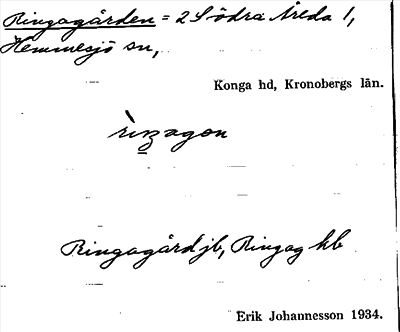 Ringagården = 2 Södra Åreda 1,
Hemmesjö sn,
Konga hd, Kronobergs län.
Ringagård jb, Ringag hb
Erik Johannesson 1934.